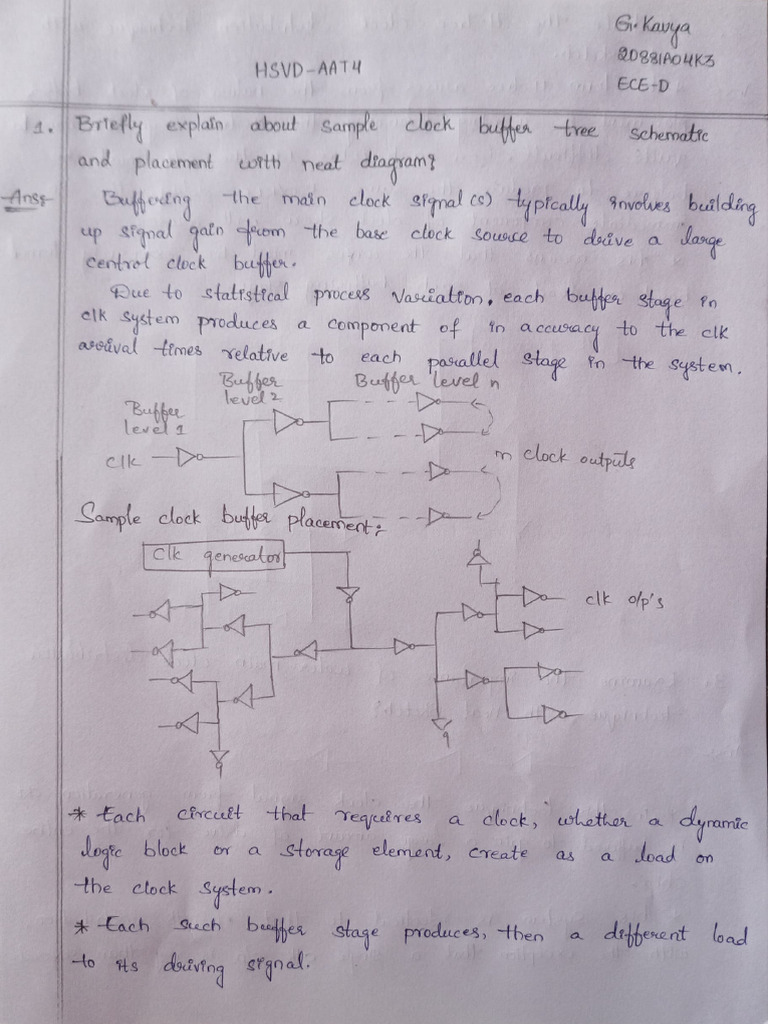 G. Kavya
20881A04K3
ECE-D
HSVD-AAT4
1. Briefly explain about sample clock buffer tree schematic
and placement with neat diagram?
Ans:-
Buffering the main clock signal(s) typically involves building
up signal gain from the base clock source to drive a large
central clock buffer.
Due to statistical process variation, each buffer stage in
clk system produces a component of in accuracy to the clk
arrival times relative to each parallel stage in the system.
Buffer level 1
Buffer level 2
Buffer level n
clk
n clock outputs
Sample clock buffer placement:
clk generator
clk o/p's
* Each circuit that requires a clock, whether a dynamic
logic block or a storage element, create as a load on
the clock system.
* Each such buffer stage produces, then a different load
to its driving signal.